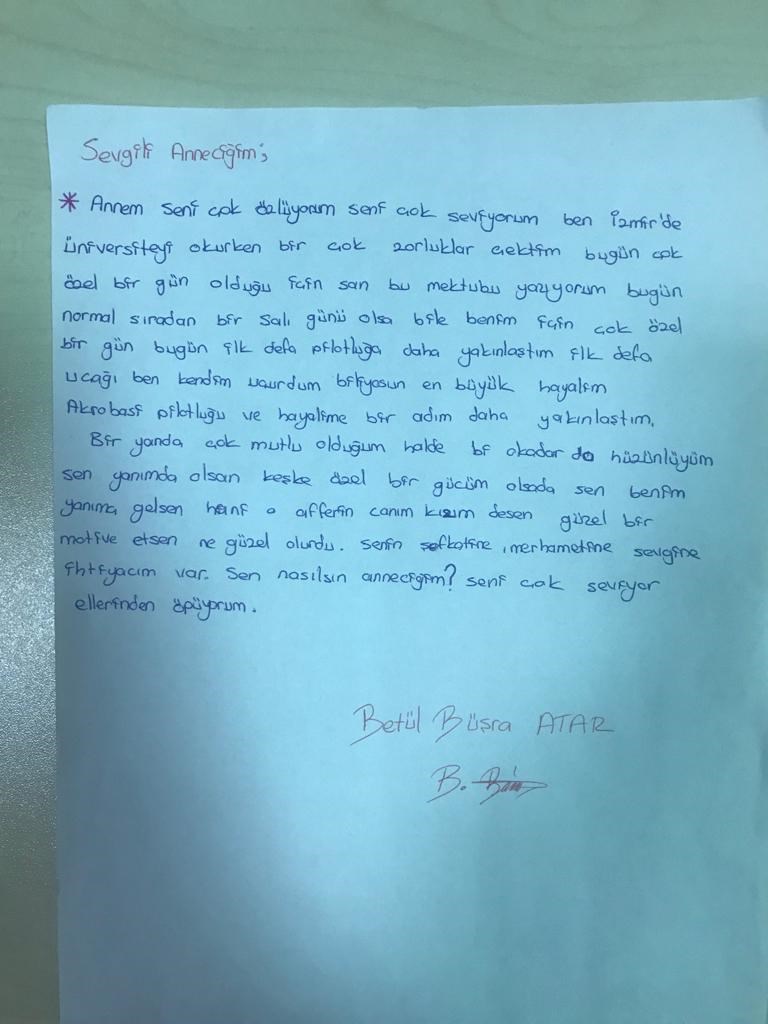 Sevgili Anneciğim;
* Annem seni çok özlüyorum seni çok seviyorum ben İzmir'de
üniversiteyi okurken bir çok zorluklar çektim bugün çok
özel bir gün olduğu için san bu mektubu yazıyorum bugün
normal sıradan bir salı günü olsa bile benim için çok özel
bir gün bugün ilk defa pilotluğa daha yakınlaştım ilk defa
uçağı ben kendim uçurdum biliyosun en büyük hayalim
Akrobasi pilotluğu ve hayalime bir adım daha yakınlaştım.
Bir yanda çok mutlu olduğum halde bi okadar da hüzünlüyüm
sen yanımda olsan keşke özel bir gücüm olsada sen benim
yanıma gelsen hani o afferin canım kızım desen güzel bir
motive etsen ne güzel olurdu. senin şefkatine, merhametine sevgine
ihtiyacım var. Sen nasılsın anneciğim? seni çok seviyor
ellerinden öpüyorum.
Betül Büşra ATAR
B.